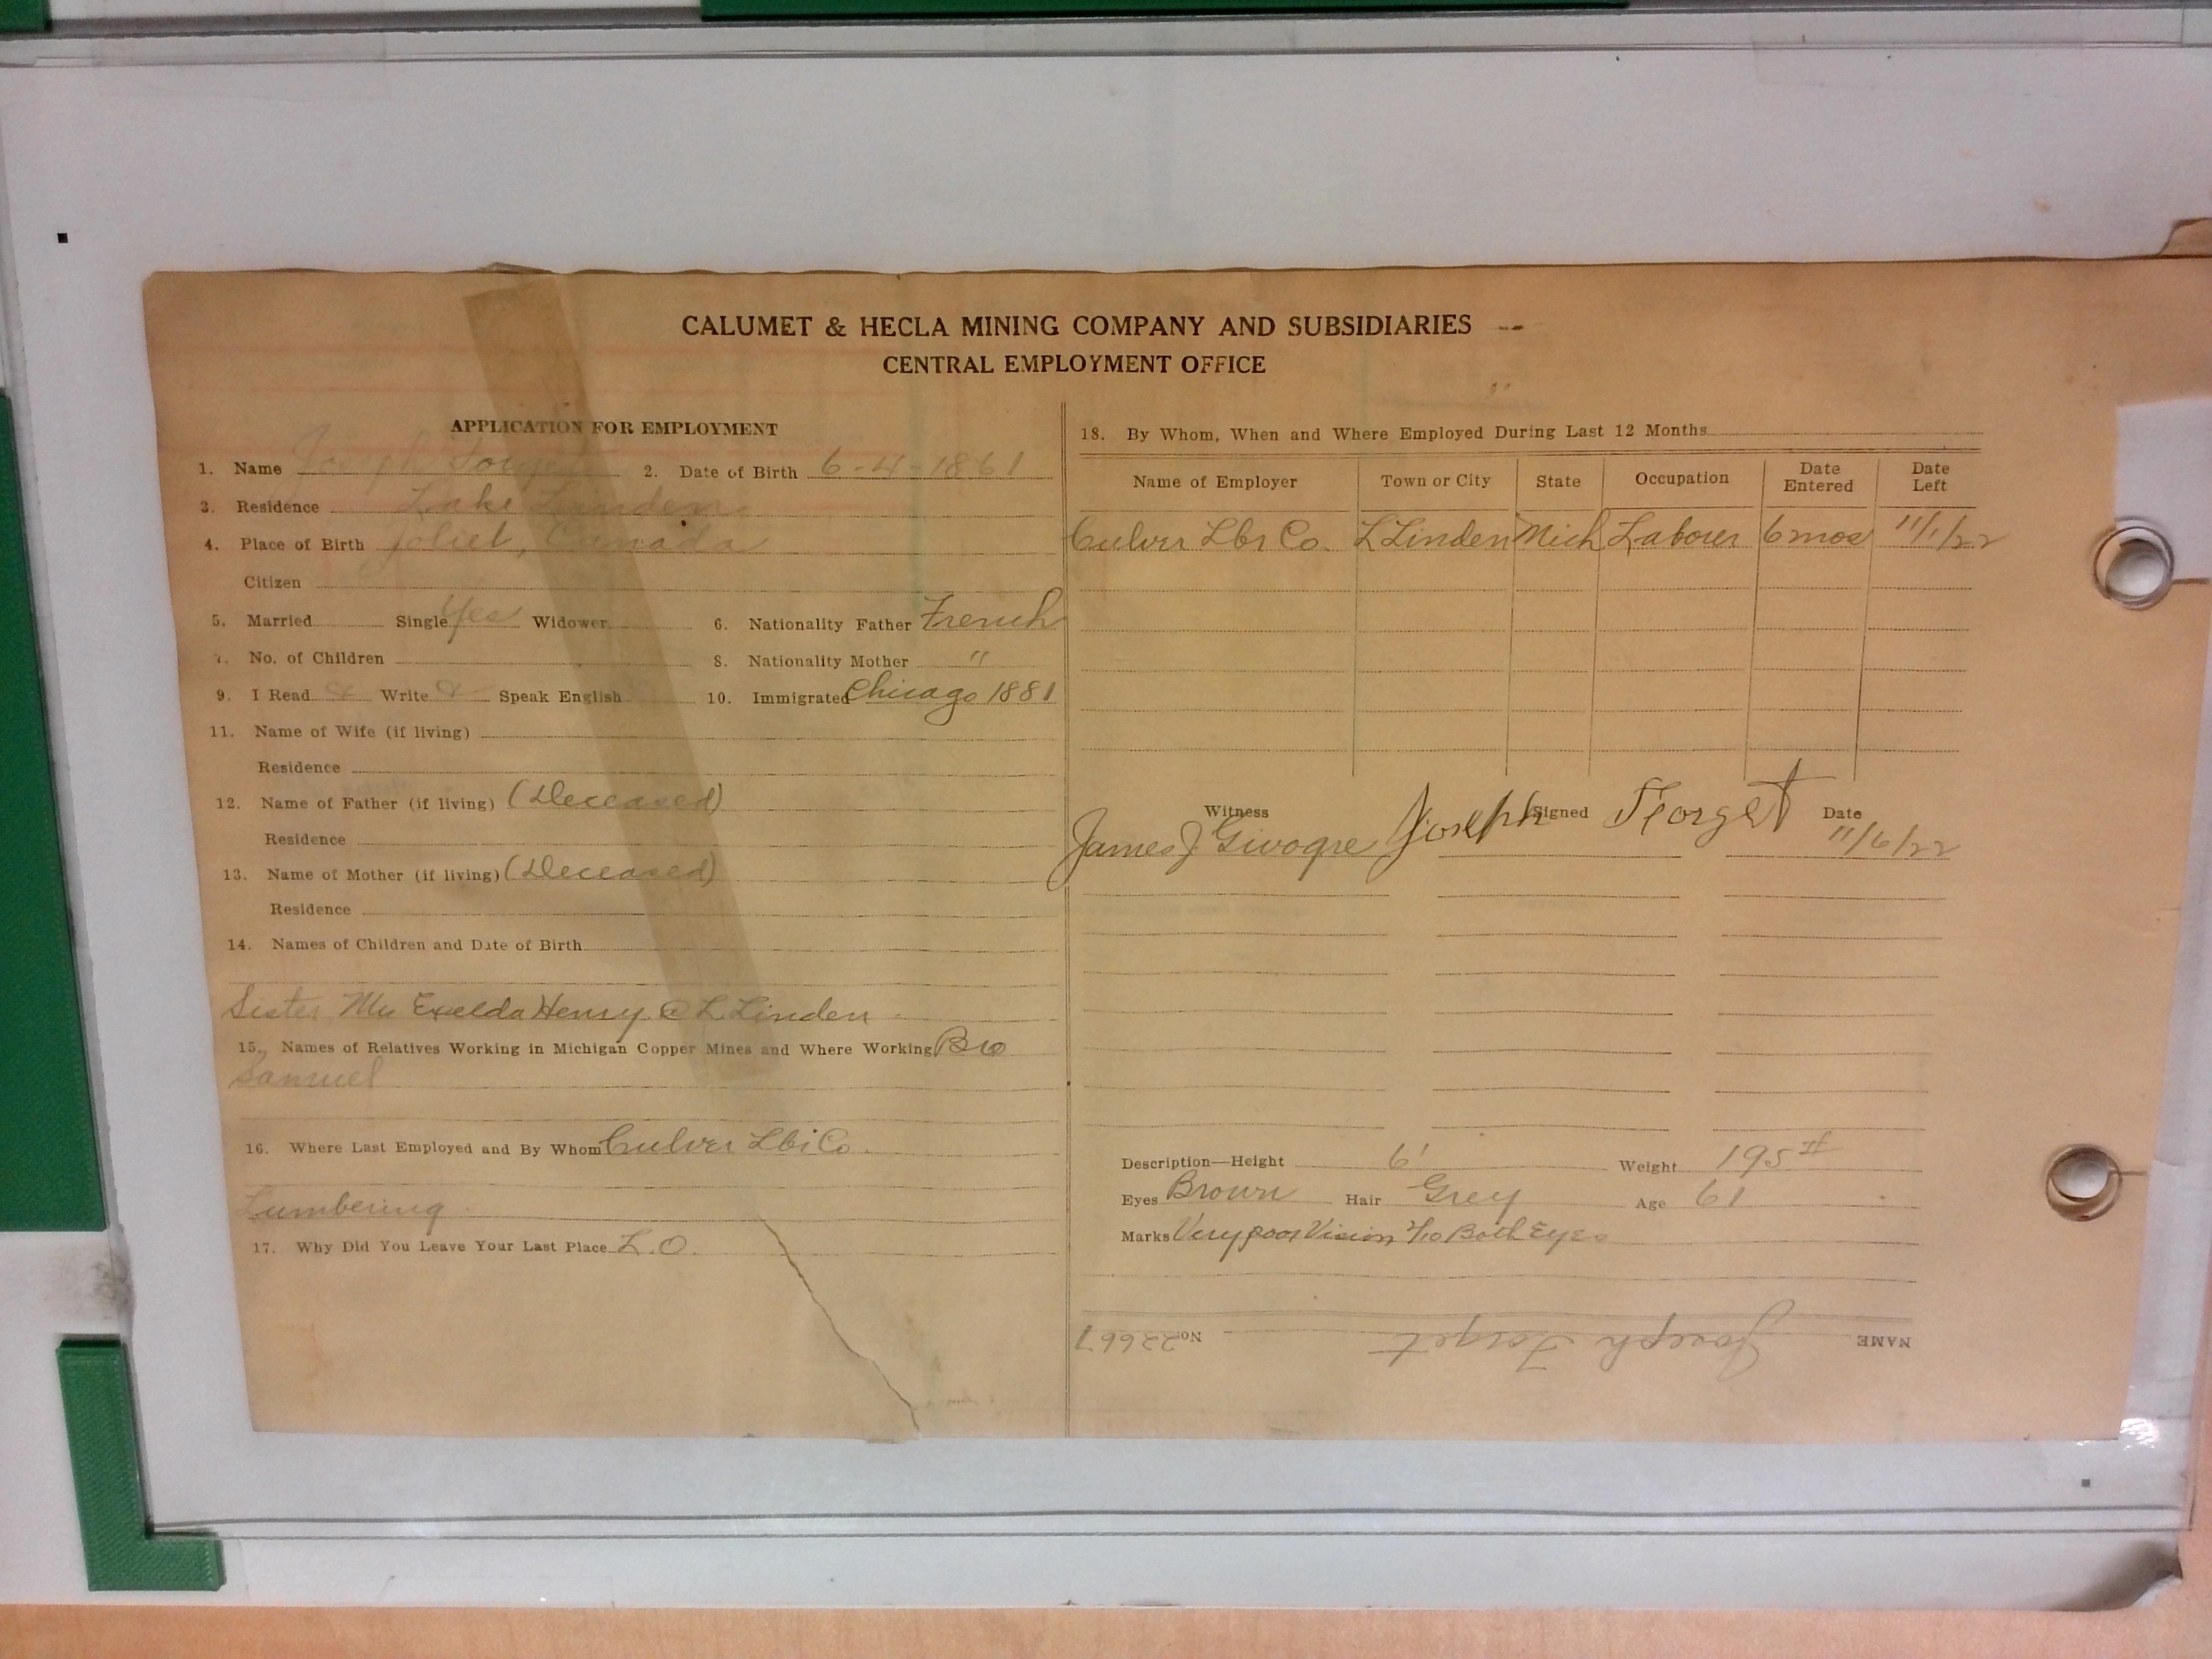 CALUMET & HECLA MINING COMPANY AND SUBSIDIARIES
CENTRAL EMPLOYMENT OFFICE
APPLICATION FOR EMPLOYMENT
1. Name Joseph Forget 2. Date of Birth 6-4-1861
3. Residence Lake Linden
4. Place of Birth Joliet, Canada
Citizen
5. Married Single Yes Widower 6. Nationality Father French
7. No. of Children 8. Nationality Mother "
9. I Read Write Speak English 10. Immigrated Chicago 1881
11. Name of Wife (if living)
Residence
12. Name of Father (if living) (Deceased)
Residence
13. Name of Mother (if living) (Deceased)
Residence
14. Names of Children and Date of Birth
Sister Mrs Exelda Henry @ L Linden
15. Names of Relatives Working in Michigan Copper Mines and Where Working Bro
Samuel
16. Where Last Employed and By Whom Culver Lbr Co.
Lumbering
17. Why Did You Leave Your Last Place L.O.
18. By Whom, When and Where Employed During Last 12 Months
Name of Employer Town or City State Occupation Date Entered Date Left
Culver Lbr Co. L Linden Mich Laborer 6 mos 11/1/22
Witness Signed Date
James J Givogre Joseph Forget 11/6/22
Description—Height 6' Weight 195 #
Eyes Brown Hair Grey Age 61
Marks Very poor Vision 2/10 Both Eyes
NAME Joseph Forget No. 22667